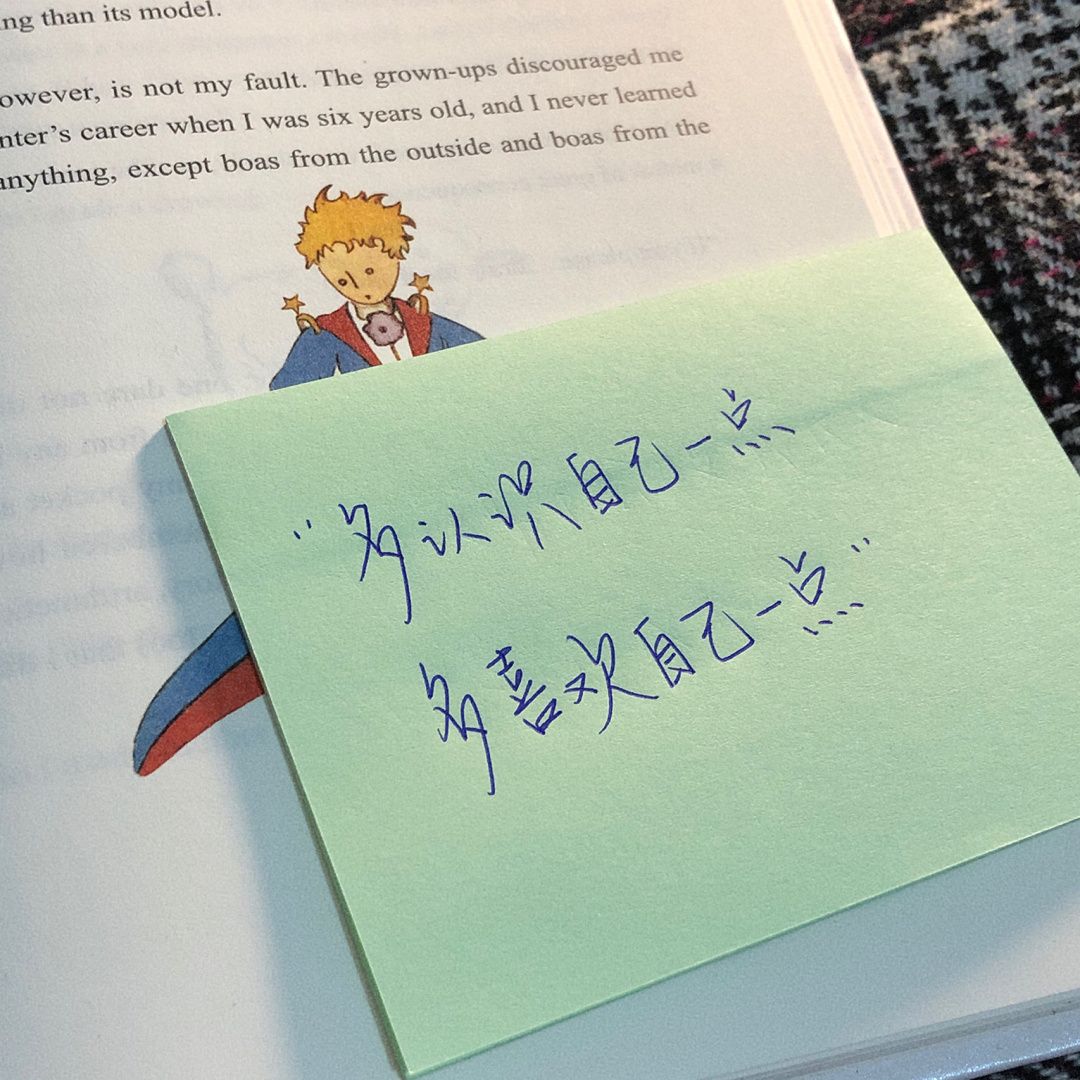 ing than its model.
owever, is not my fault. The grown-ups discouraged me
nter's career when I was six years old, and I never learned
anything, except boas from the outside and boas from the
"多认识自己一点
多喜欢自己一点"